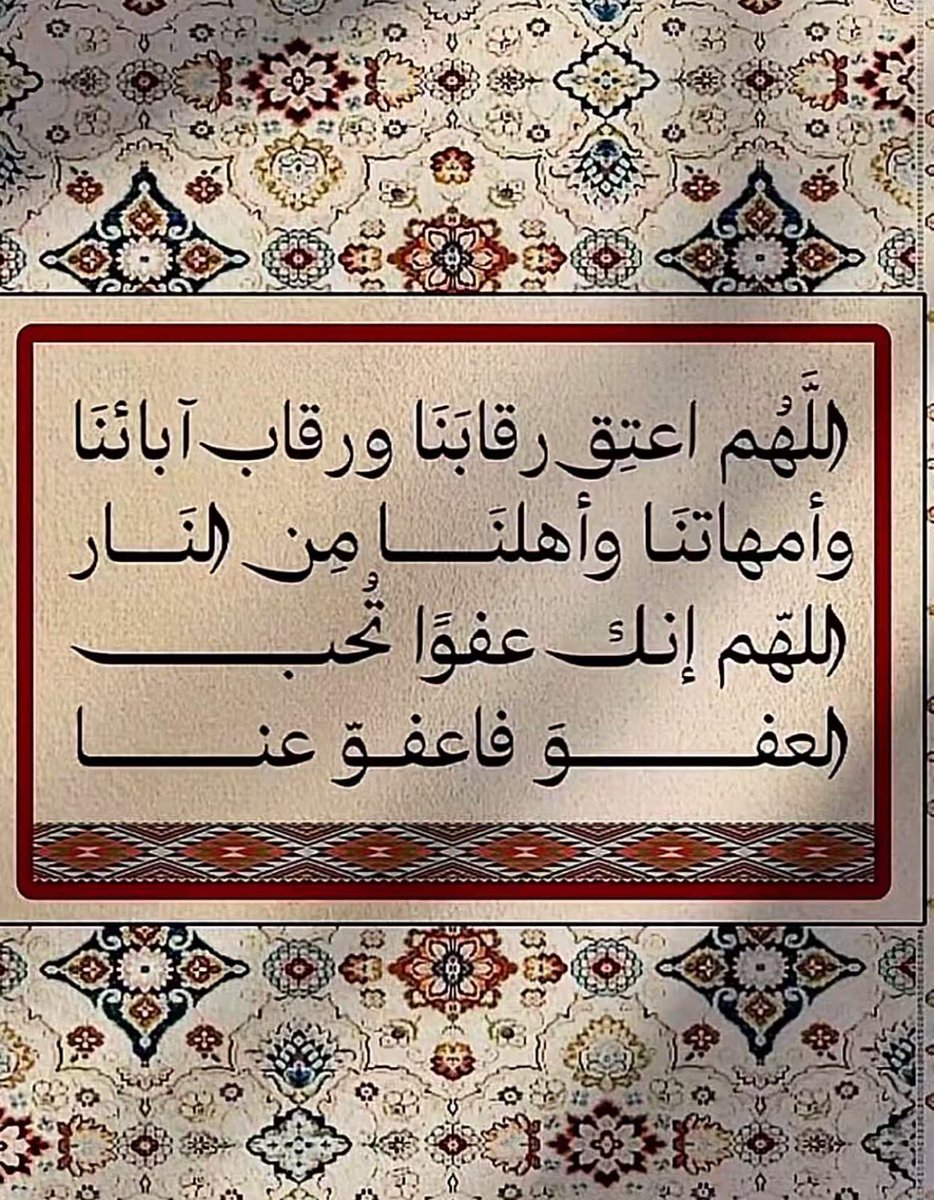 اللَّهُم اعتِق رقابَنَا ورقاب آبائنَا
وأمهاتنَا وأهلنَا مِن النَار
اللهّم إنك عفوًا تُحب
العفوَ فاعفوّ عنا